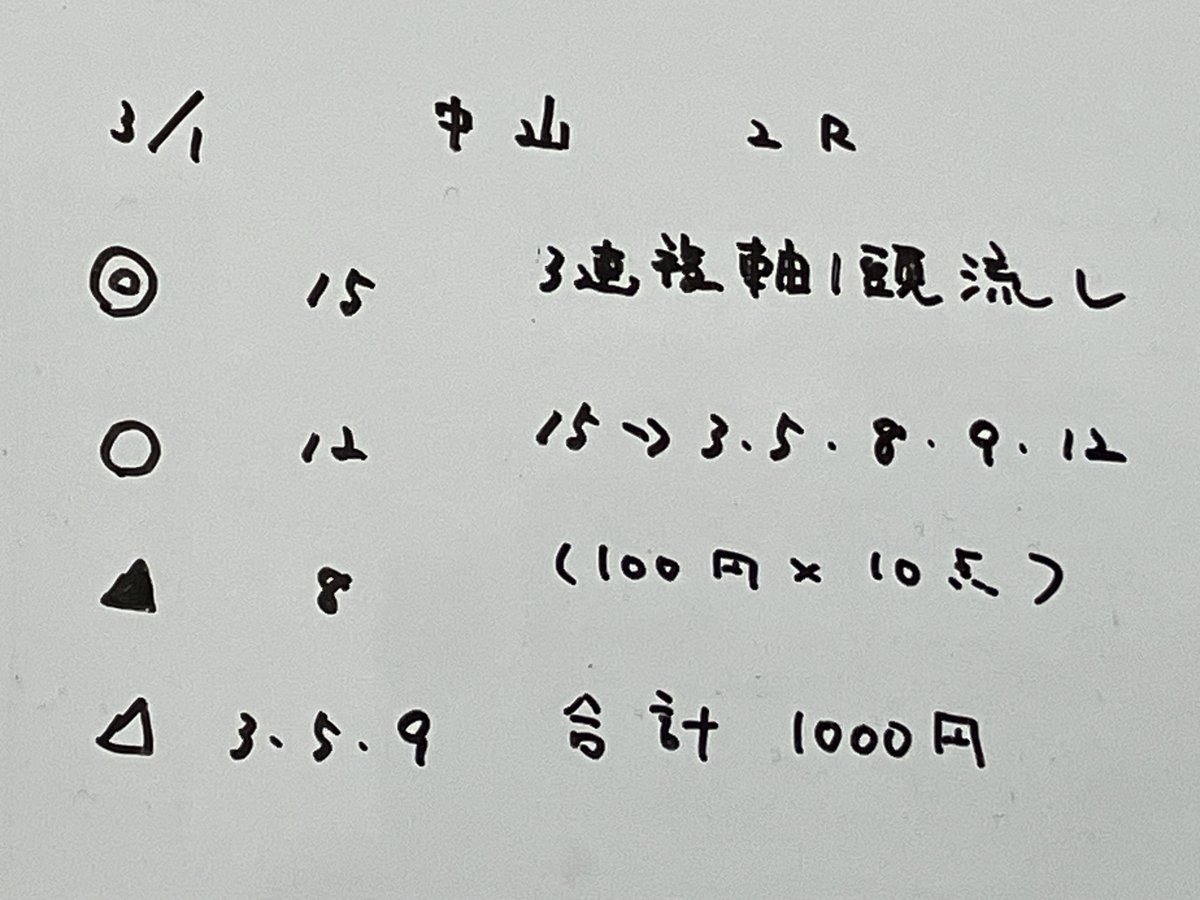 3/1 中山 2R
◎ 15 3連複軸1頭流し
○ 12 15→3.5.8.9.12
▲ 8 (100円×10点)
△ 3.5.9 合計 1000円